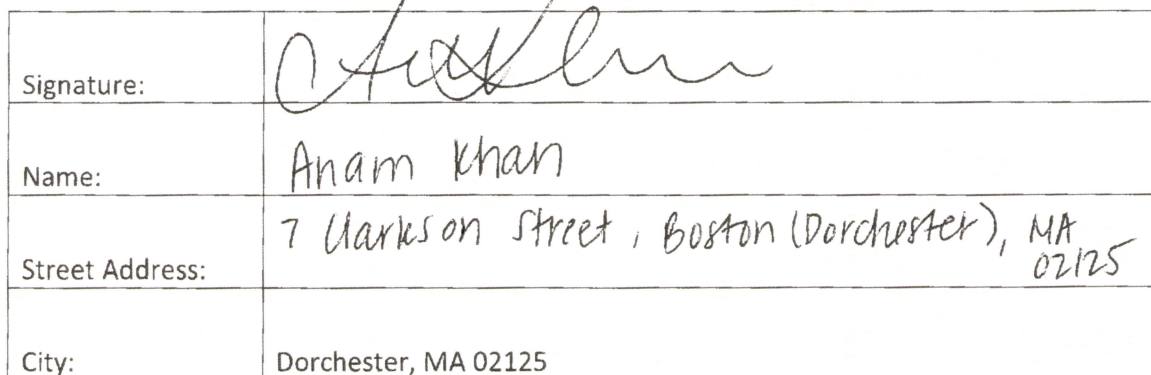 Signature:
Name: Anam Khan
Street Address: 7 Clarkson Street, Boston (Dorchester), MA
02125
City: Dorchester, MA 02125